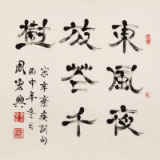 東風夜
放花千
樹
宋辛棄疾詞句
丙申年
周宏興